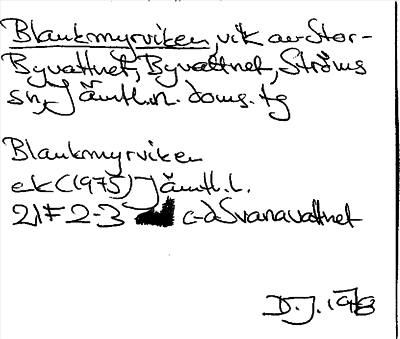 Blankmyrviken, vik av Stor-
Byvattnet, Byvattnet, Ströms
sn, Jämtl.n. doms. tg
Blankmyrviken
ek (1975) Jämtl. l.
21F 2-3 c-d Svanavattnet
D.J. 1978